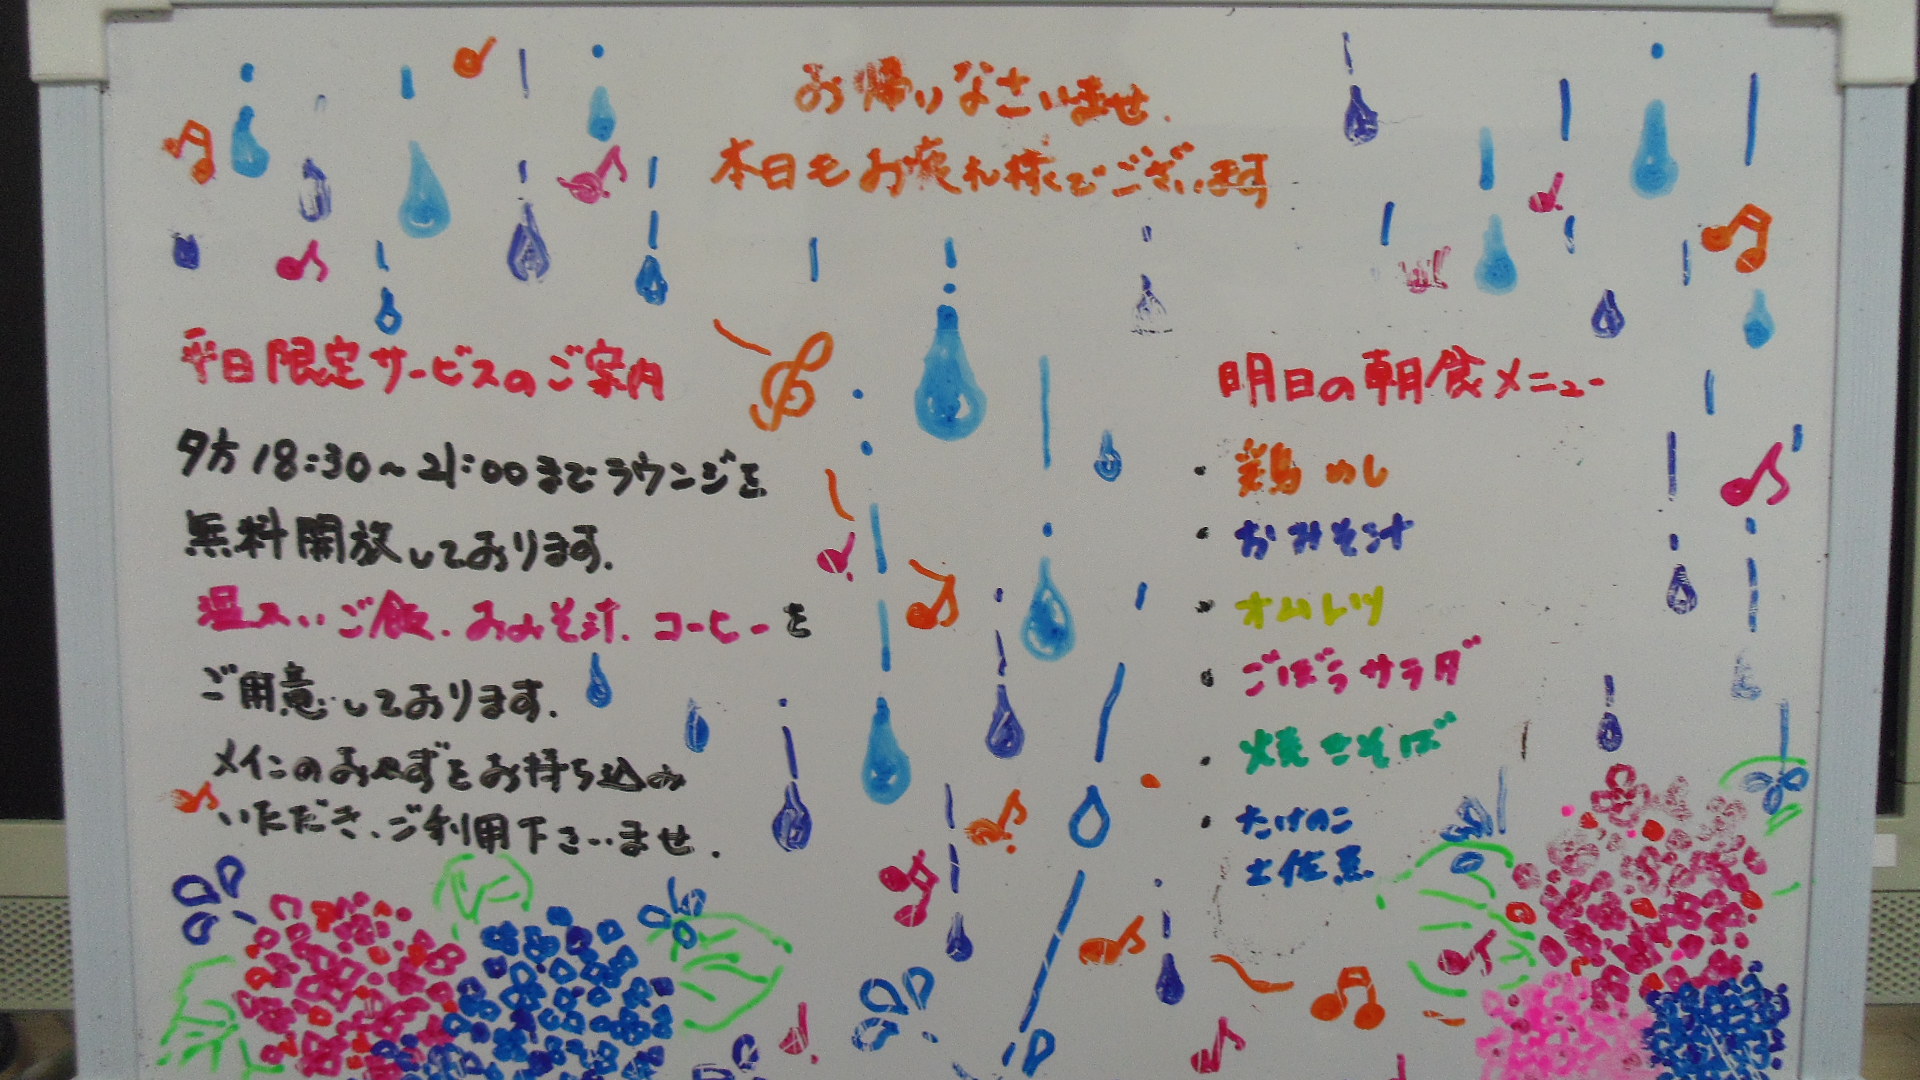 お帰りなさいませ.
本日もお疲れ様でございます
平日限定サービスのご案内
夕方18:30~21:00までラウンジを
無料開放しております.
温かいご飯.おみそ汁.コーヒーを
ご用意しております.
メインのおかずをお持ち込み
いただき、ご利用下さいませ.
明日の朝食メニュー
・鶏めし
・おみそ汁
・オムレツ
・ごぼうサラダ
・焼きそば
・たけのこ
土佐煮